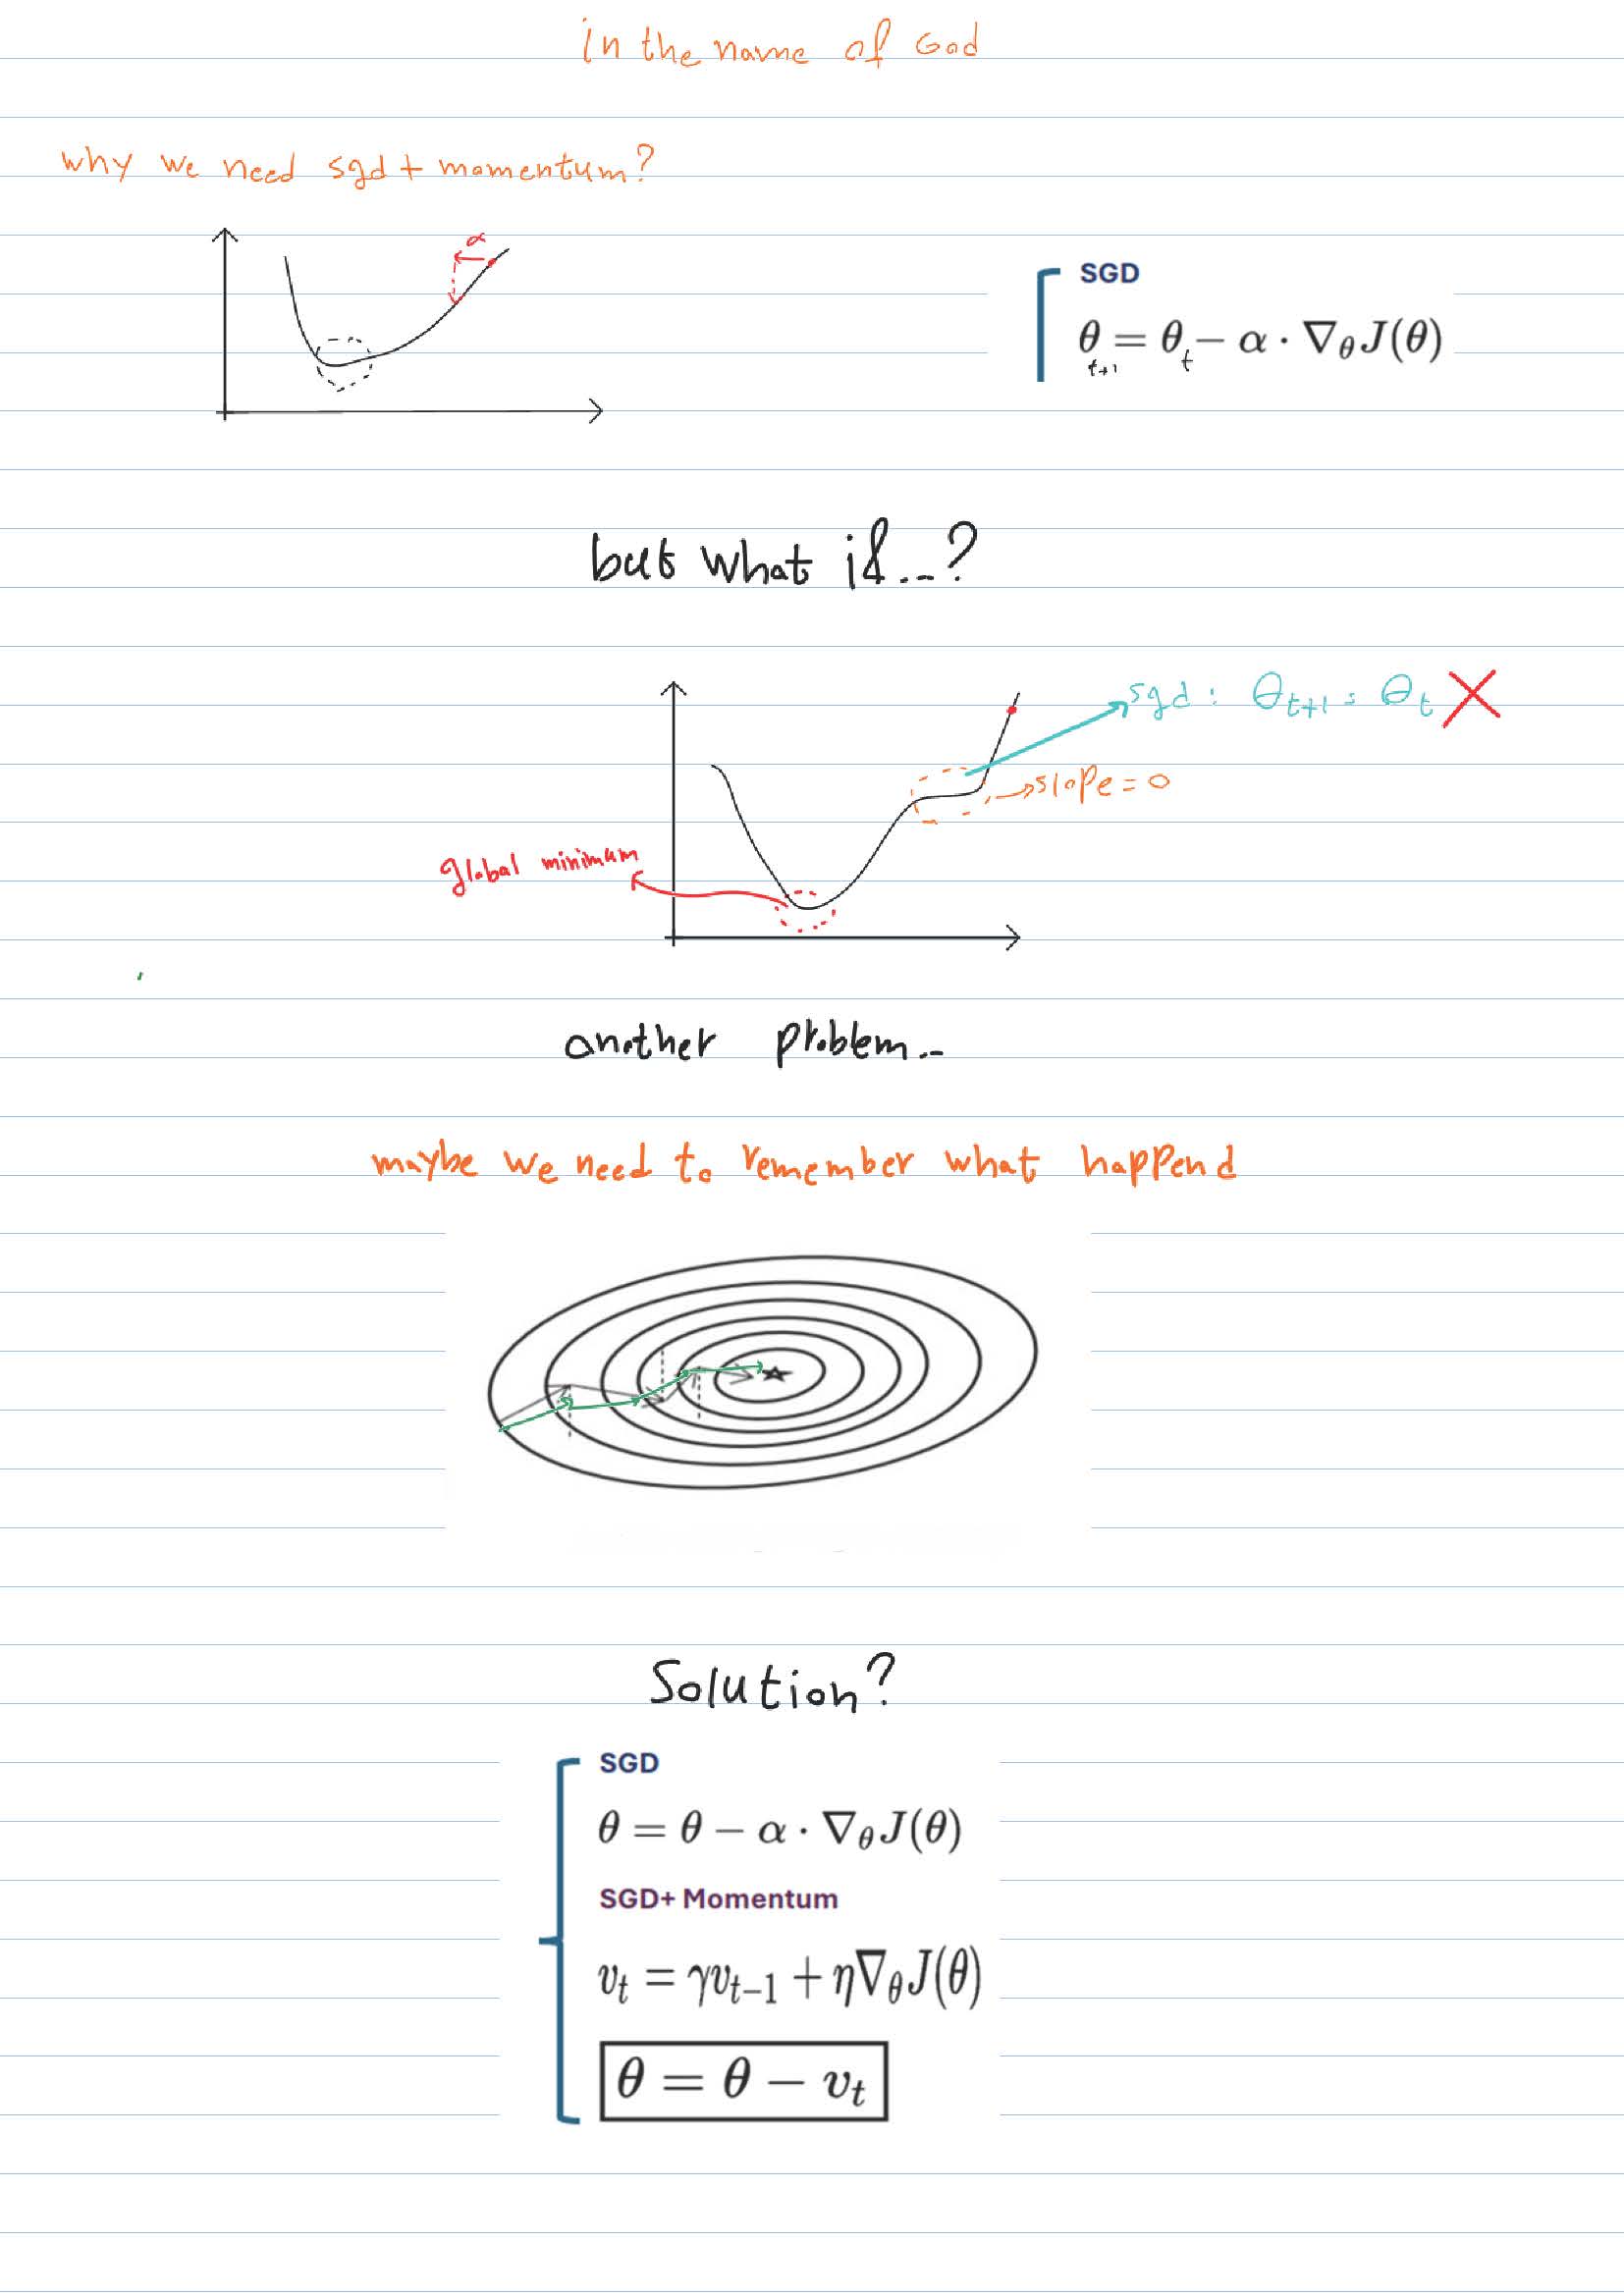 in the name of God
why we need sgd + momentum?
α
SGD
θ = θ − α · ∇θJ(θ)
t+1 t
but what if...?
sgd : θt+1 = θt
slope = 0
global minimum
another problem..
maybe we need to remember what happend
Solution?
SGD
θ = θ − α · ∇θJ(θ)
SGD+ Momentum
vt = γvt−1 + η∇θJ(θ)
θ = θ − vt